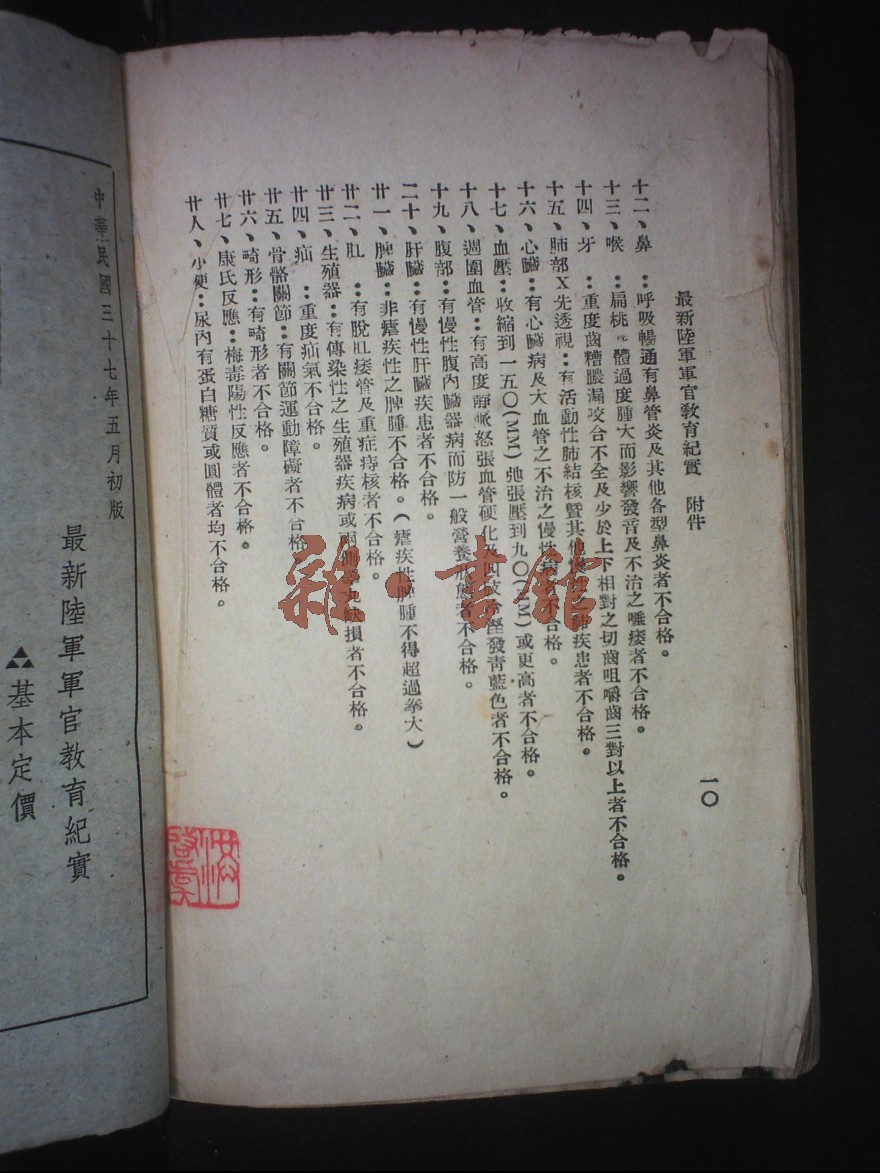 最新陸軍軍官教育紀實 附件
一〇
十二、鼻 ：呼吸暢通有鼻管炎及其他各型鼻炎者不合格。
十三、喉 ：扁桃 體過度腫大而影響發音及不治之 瘘者不合格。
十四、牙 ：重度齒糟膿漏咬合不全及少於上下相對之切齒咀嚼齒三對以上者不合格。
十五、肺部X先透視：有活動性肺結核暨其他慢性之肺疾患者不合格。
十六、心臟：有心臟病及大血管之不治之慢性病者不合格。
十七、血壓：收縮到一五〇(MM)弛張壓到九〇(MM)或更高者不合格。
十八、週圍血管：有高度靜脈怒張血管硬化及四肢 發青藍色者不合格。
十九、腹部：有慢性腹內臟器病而防一般營養狀態者不合格。
二十、肝臟：有慢性肝臟疾患者不合格。
廿一、脾臟：非瘧疾性之脾腫不合格。(瘧疾性脾腫不得超過拳大)
廿二、肛 ：有脫肛痿管及重症痔核者不合格。
廿三、生殖器：有傳染性之生殖器疾病或兩側睾丸缺損者不合格。
廿四、疝 ：重度疝氣不合格。
廿五、骨骼關節：有關節運動障礙者不合格。
廿六、畸形：有畸形者不合格。
廿七、康氏反應：梅毒陽性反應者不合格。
廿人、小便：尿內有蛋白糖質或圓體者均不合格。
雜·書館
中華民國三十七年五月初版
最新陸軍軍官教育紀實
▲基本定價